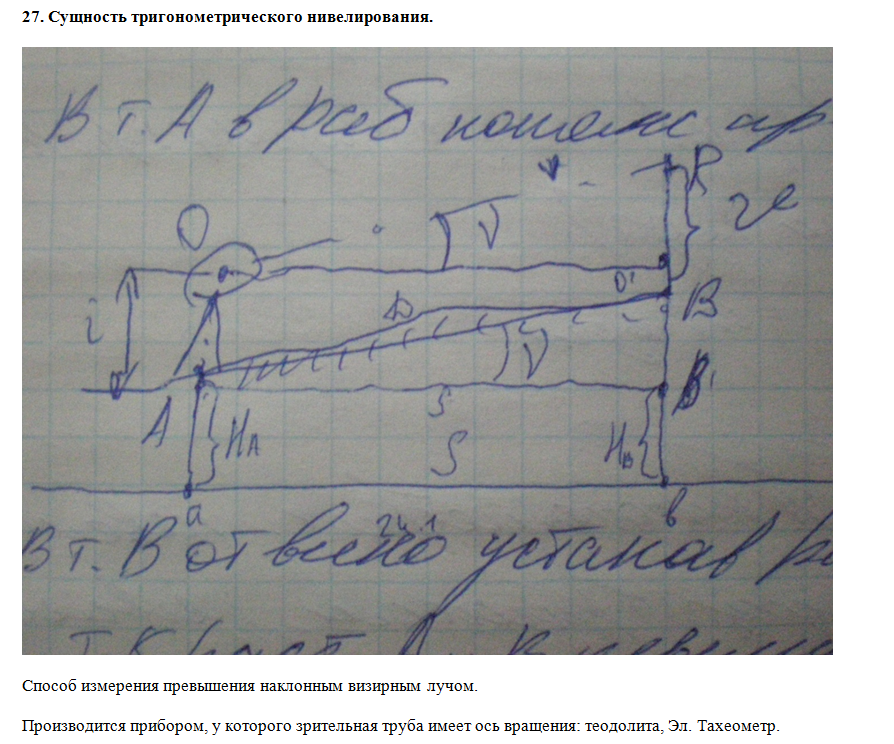 27. Сущность тригонометрического нивелирования.
В т. А в раб
P
O
ν
i
D
O'
B
ν
A
B'
S
HА
S
HВ
а
в
В т. В отвесно устанав
Способ измерения превышения наклонным визирным лучом.
Производится прибором, у которого зрительная труба имеет ось вращения: теодолита, Эл. Тахеометр.